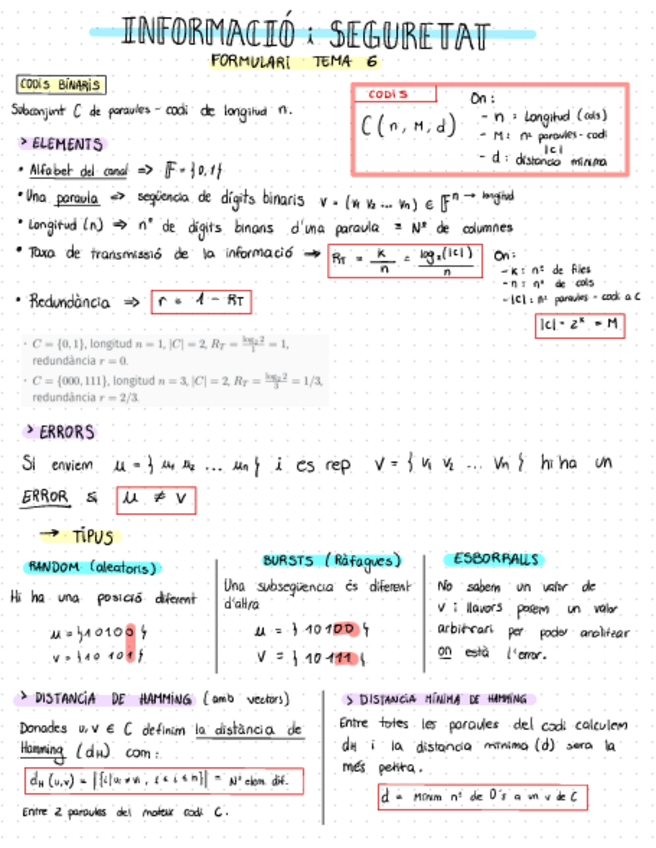 INFORMACIÓ i SEGURETAT
FORMULARI TEMA 6
CODIS BINARIS
Subconjunt C de paraules-codi de longitud n.
CODIS
C(n, M, d)
On:
- n : Longitud (cols)
- M : nº paraules-codi
|C|
- d : distancia mínima
> ELEMENTS
• Alfabet del canal => 𝔽 = {0,1}
• Una paraula => seqüencia de dígits binaris v = (v₁ v₂ ... vₙ) ∈ 𝔽ⁿ → longitud
• Longitud (n) => nº de dígits binaris d'una paraula = Nº de columnes
• Taxa de transmissió de la informació → R_T = k/n = log₂(|C|)/n
On:
- k : nº de files
- n : nº de cols
- |C| : nº paraules-codi a C
|C| = 2ᵏ = M
• Redundància => r = 1 - R_T
· C = {0, 1}, longitud n = 1, |C| = 2, R_T = log₂ 2/1 = 1,
redundància r = 0.
· C = {000, 111}, longitud n = 3, |C| = 2, R_T = log₂ 2/3 = 1/3,
redundància r = 2/3.
> ERRORS
Si enviem μ = { μ₁ μ₂ ... μₙ } i es rep v = { v₁ v₂ ... vₙ } hi ha un
ERROR si μ ≠ v
→ TIPUS
RANDOM (aleatoris)
Hi ha una posició diferent
μ = {10100}
v = {10101}
BURSTS (Ràfagues)
Una subseqüencia és diferent
d'altra
μ = {10100}
v = {10111}
ESBORRALLS
No sabem un valor de
v i llavors posem un valor
arbitrari per poder analitzar
on està l'error.
> DISTANCIA DE HAMMING (amb vectors)
Donades u, v ∈ C definim la distància de
Hamming (d_H) com:
d_H (u,v) = |{i | uᵢ ≠ vᵢ, 1 ≤ i ≤ n}| = Nº elem. dif.
Entre 2 paraules del mateix codi C.
> DISTANCIA MÍNIMA DE HAMMING
Entre totes les paraules del codi calculem
d_H i la distancia mínima (d) sera la
més petita.
d = Mínim nº de 0's a un v de C